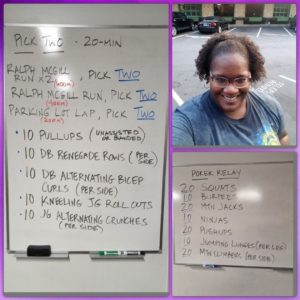 PICK TWO - 20-MIN
RALPH MCGILL
RUN x2, PICK TWO
(400M)
RALPH MCGILL RUN, PICK TWO
(400M)
PARKING LOT LAP, PICK TWO
(200M)
• 10 PULLUPS (UNASSISTED OR BANDED)
• 10 DB RENEGADE ROWS (PER SIDE)
• 10 DB ALTERNATING BICEP
CURLS (PER SIDE)
• 10 KNEELING JG ROLL OUTS
• 10 JG ALTERNATING CRUNCHES
(PER SIDE)
POKER RELAY
20 SQUATS
10 BURPEES
20 MTN JACKS
10 NINJAS
20 PUSHUPS
10 JUMPING LUNGES (PER LEG)
20 MTN CLIMBERS (PER SIDE)